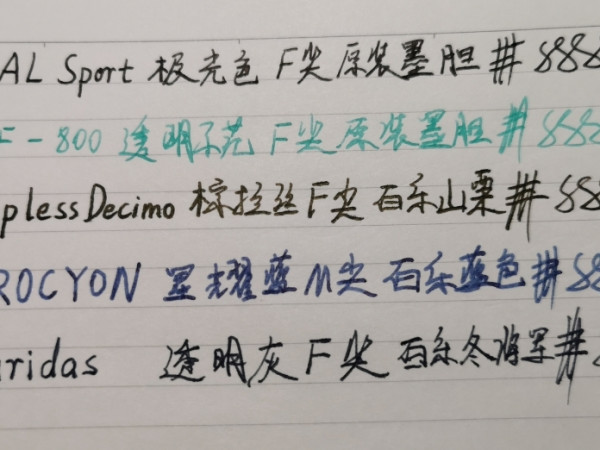 AL Sport 极光色 F尖 原装墨胆 井 888
-800 透明示范 F尖 原装墨胆 井 888
pless Decimo 棕拉丝 F尖 百乐山栗 井 888
ROCYON 星耀蓝 M尖 百乐蓝色 井 88
ridas 透明灰 F尖 百乐冬将军 井